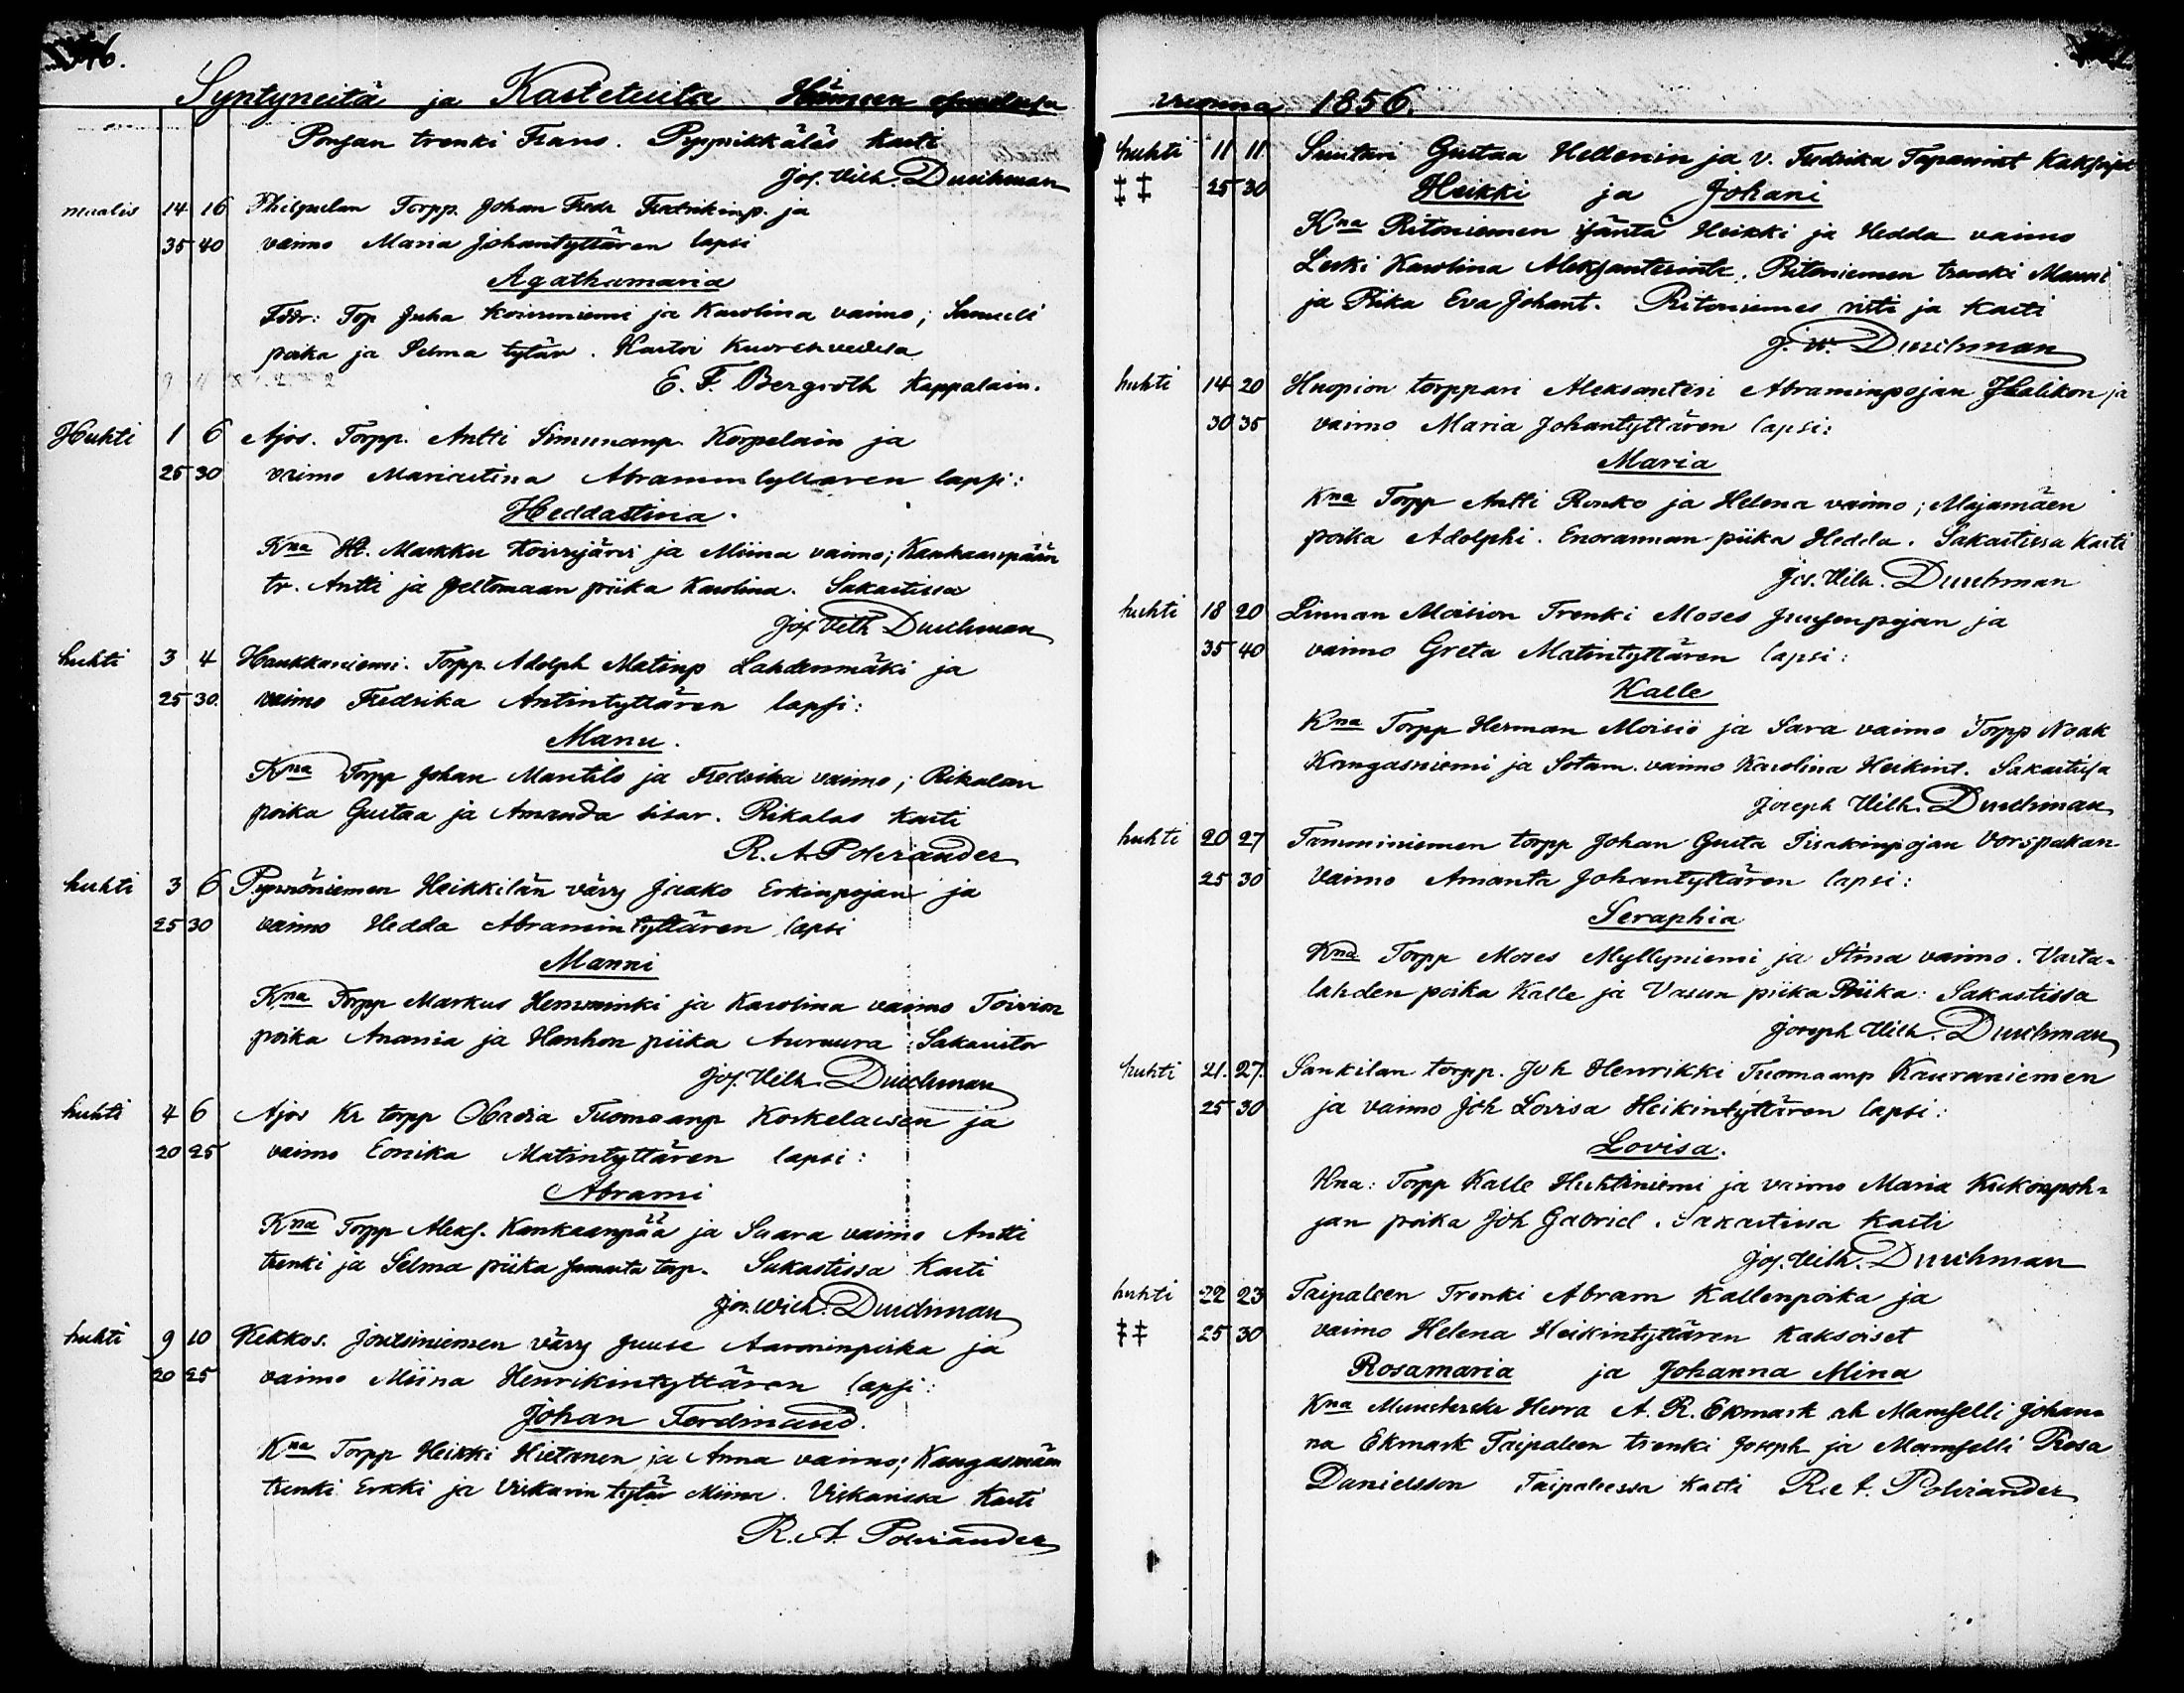 Syntyneitä ja Kastetuita
Ponsan trenki Frans. Pyppikkäläs kasti
Jos. Vilh. Durchman
maalis 14 16 Torpp. Johan Fredr Fredrikinp. ja
35 40 vaimo Maria Johantyttären lapsi
Agathamaria
Fddr: Top Juha Koivuniemi ja Karolina vaimo; Samueli
poika ja Selma tytär. Kastoi Kuorehvedesa
E. F. Bergroth Kappalain.
Huhti 1 6 Ajos. Torpp. Antti Simunanp. Korpelain ja
25 30 vaimo Mariastina Abramintyttären lapsi:
Heddastina.
Kna He. Markku Koivujärvi ja Miina vaimo; Kankaanpään
tr. Antti ja Jeltomaan piika Karolina. Sakastissa
Jos Vilh Durchman
huhti 3 4 Haukkaniemi. Torpp. Adolph Matinp Lahdenmäki ja
25 30. vaimo Fredrika Antintyttären lapsi:
Manu.
Kna Torpp Johan Mantila ja Fredrika vaimo; Rikalan
poika Gustaa ja Amanda sisar. Rikalas kasti
R. A. Polviander
huhti 3 6 Pynnöniemen Heikkilän vävy Jaako Erkinpojan ja
25 30 vaimo Hedda Abramintyttären lapsi
Manni
Kna Torpp Markus ja Karolina vaimo Toivion
poika Anania ja Hanhon piika Auruura Sakasitos
Jos. Vilh. Durchman
huhti 4 6 Ajos Kr torpp Obadia Tuomaanp Korkelaisen ja
20 25 vaimo Eonika Matintyttären lapsi:
Abrami
Kna Torpp Aleks. Kankaanpää ja Saara vaimo Antti
trenki ja Selma piika torp. Sakastissa kasti
Jos. Wilh. Durchman
huhti 9 10 Kekkos. Joutsiniemen vävy Juuse Aaroninpoika ja
20 25 vaimo Miina Henrikintyttären lapsi:
Johan Ferdinand.
Kna Torpp Heikki Hietanen ja Anna vaimo; Kangasmäen
trenki Erkki ja Viskarin tytär Miina. Viskarissa kasti
R. A. Polviander
vuonna 1856.
huhti 11 11. Suutari Gustaa Hellenin ja v. Fredrika Tapanint kaksoiset
‡ ‡ 25 30 Heikki ja Johani
Kna Ritoniemen isäntä Heikki ja Hedda vaimo
Leski Karolina Aleksanterint. Ritoniemen trenki Manni
ja Piika Eva Johant. Ritoniemes risti ja kasti
J. W. Durchman
huhti 14 20 Huopion torppari Aleksanteri Abraminpojan Jhalikon ja
30 35 vaimo Maria Johantyttären lapsi:
Maria
Kna Torpp Antti Ronko ja Helena vaimo; Majamäen
poika Adolphi. Enorannan piika Hedda. Sakastissa kasti
Jos. Vilh. Durchman
huhti 18 20 Linnan Moision Trenki Moses Juusenpojan ja
35 40 vaimo Greta Matintyttären lapsi:
Kalle
Kna Torpp Herman Moisio ja Sara vaimo Torpp Noak
Kangasniemi ja Sotam. vaimo Karolina Heikint. Sakastisa
Joseph Vilh. Durchman
huhti 20 27 Tamminiemen torpp Johan Gusta Iisakinpojan Vorspakan
25 30 Vaimo Amanta Johantyttären lapsi:
Seraphia
Kna Torpp Moses Myllyniemi ja Stina vaimo. Vasta-
lahden poika Kalle ja Vasun piika Riika: Sakastissa
Joseph Vilh. Durchman
huhti 21. 27. Sankilan torpp. Joh Henrikki Tuomaanp Kauraniemen
25 30 ja vaimo Joh Lovisa Heikintyttären lapsi:
Lovisa.
Kna: Torpp Kalle Huhtiniemi ja vaimo Maria Kukonpoh-
jan poika Joh Gabriel. Sakastissa kasti
Jos. Vilh. Durchman
huhti 22 23 Taipaleen Trenki Abram Kallenpoika ja
‡ ‡ 25 30 vaimo Helena Heikintyttären kaksoiset
Rosamaria ja Johanna Mina
Kna Herra A. R. Ekmark Mamselli Johan-
na Ekmark Taipaleen trenki Joseph ja Mamselli Rosa
Danielsson Taipaleessa kasti R. A. Polviander